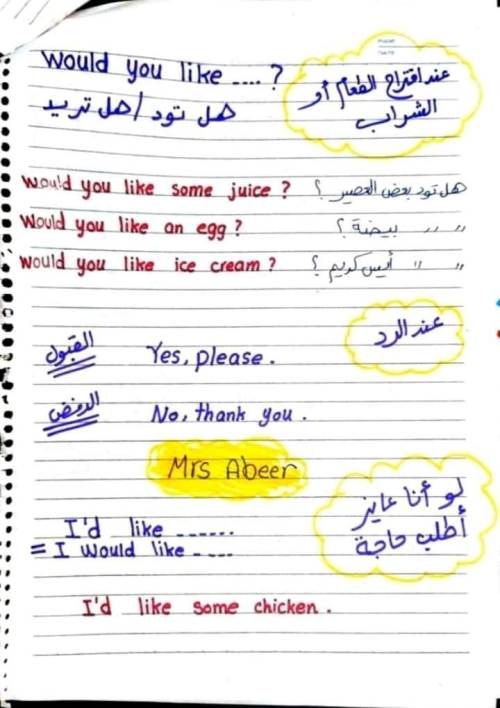 would you like .... ?
عند اقتراح الطعام أو
الشراب
هل تود / هل تريد
would you like some juice ? هل تود بعض العصير ؟
would you like an egg ? " " بيضة ؟
would you like ice cream ? " " أيس كريم ؟
عند الرد
القبول Yes, please .
الرفض No, thank you .
Mrs Abeer
لو أنا عايز
أطلب حاجة
I'd like ......
= I would like ....
I'd like some chicken .